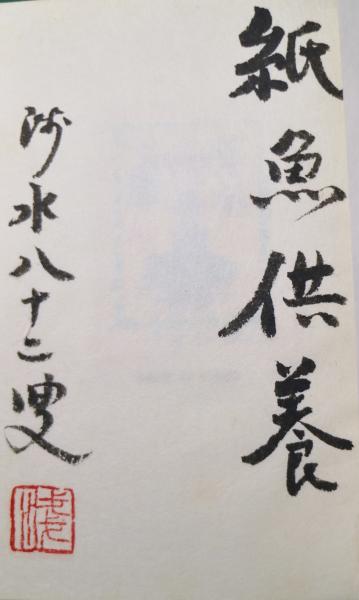 紙魚供養
水八十二叟